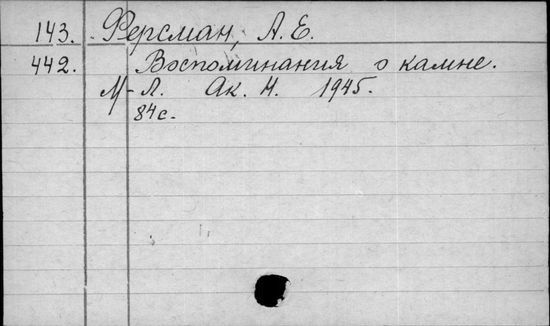 143. Ферсман, А. Е.
442. Воспоминания о камне.
М-Л. Ак. Н. 1945.
84 с.